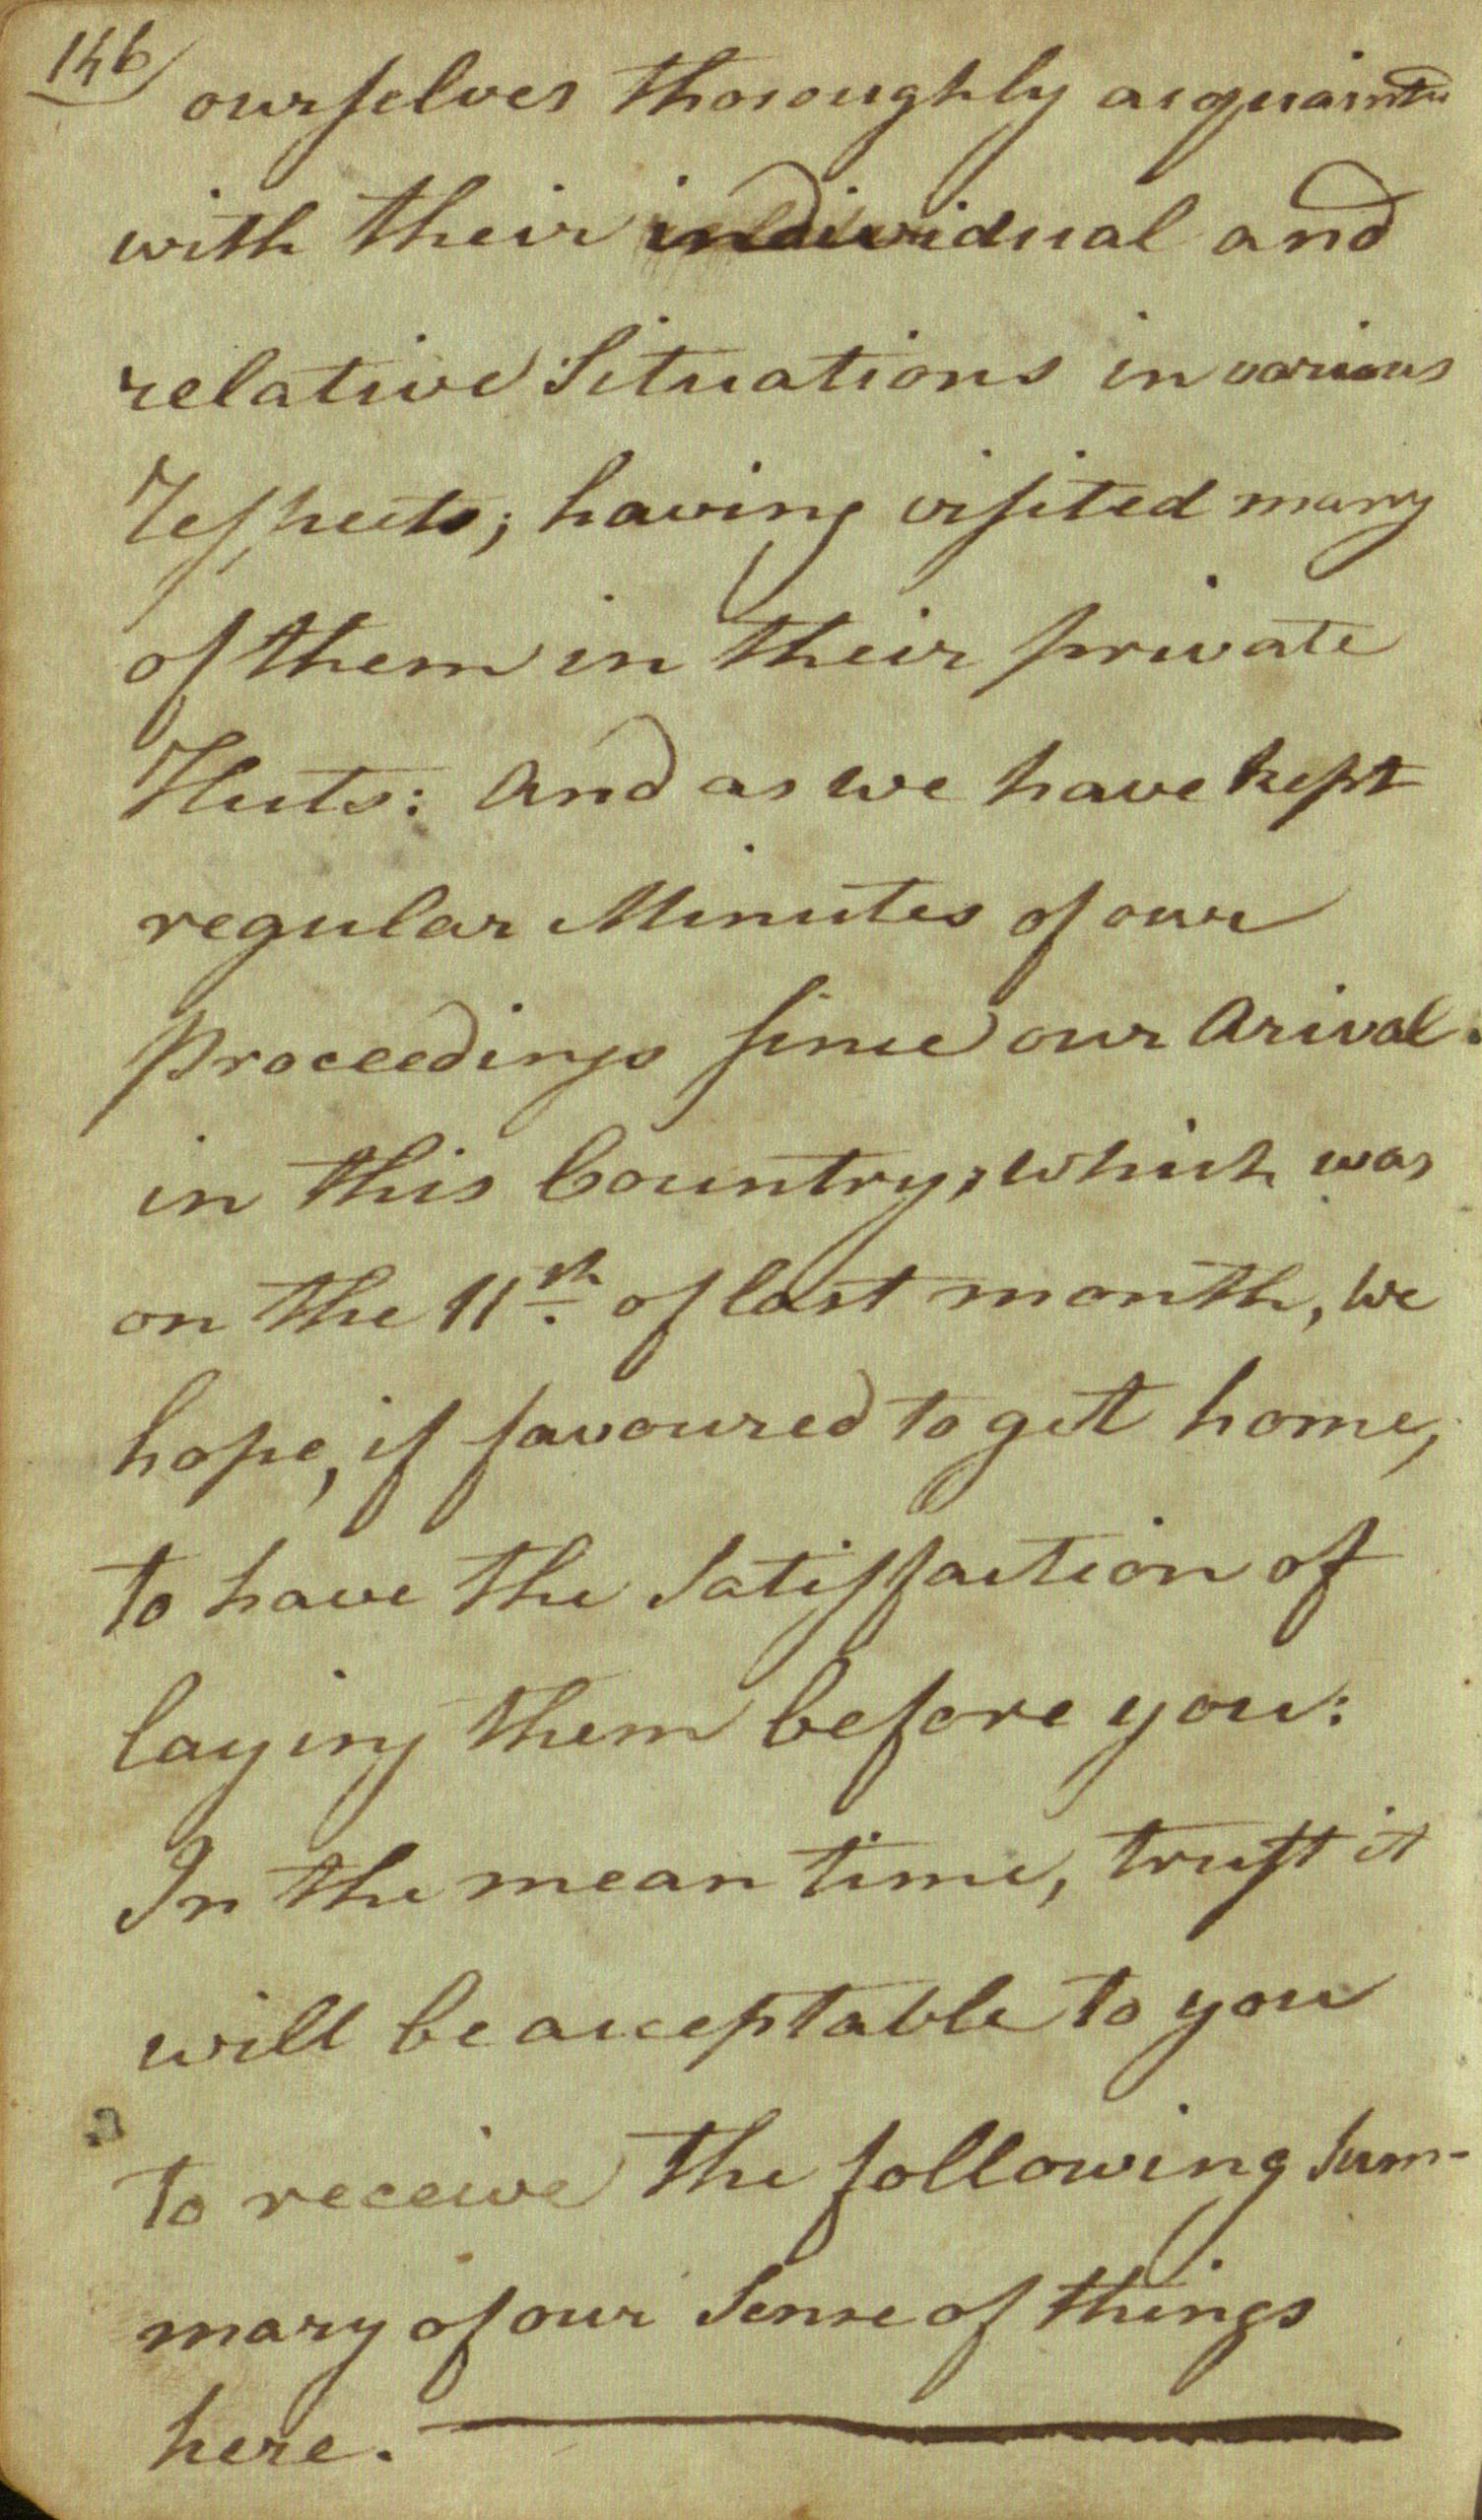 146
ourselves thoroughly acquainted
with their individual and
relative Situations in various
respects; having visited many
of them in their private
Huts: And as we have kept
regular Minutes of our
Proceedings since our Arival
in this Country, which was
on the 11th. of last month, we
hope, if favoured to get home,
to have the Satisfaction of
laying them before you:
In the mean time, trust it
will be acceptable to you
to receive the following Sum-
mary of our Sense of things
here.